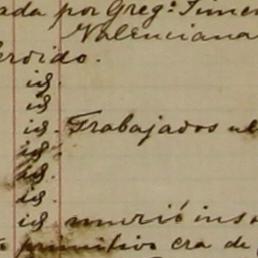 ada por Greg.º Jimen
Valenciana
erdido.
id.
id
id. Trabajados
id.
id.
id.
id murió
primitivo era de